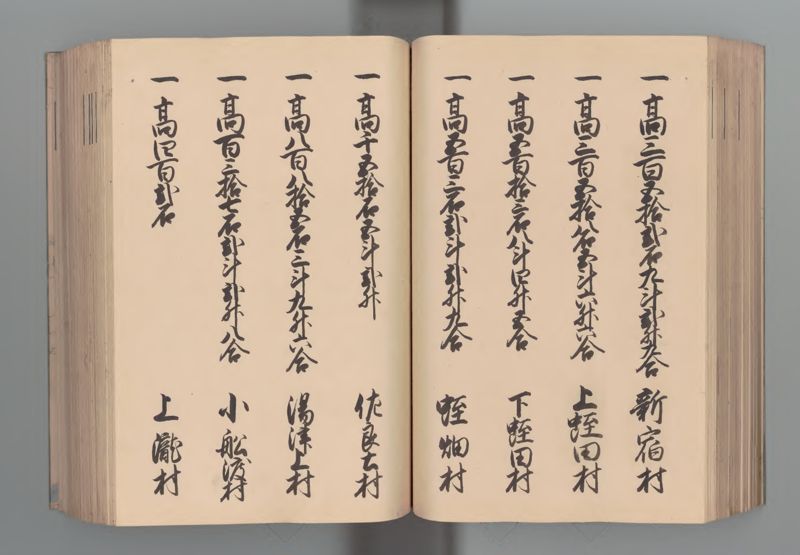 一高三百五拾弐石九斗弐升九合 新宿村
一高三百五拾八石五斗六升六合 上蛭田村
一高五百拾三石八斗四升五合 下蛭田村
一高五百三石弐斗弐升九合 蛭畑村
一高千五拾石五斗弐升 佐良土村
一高八百八拾五石三斗九升六合 湯津上村
一高百三拾七石弐斗弐升八合 小船渡村
一高四百弐石 上瀧村